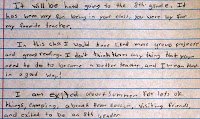 It will be hard going to the 8th grade. It
has been very fun being in your class, you were by far
my favorite teacher.
In this class I would have liked more group projects
and good reading. I don't think there's any thing that you
need to do to become a better teacher, and I mean that
in a good way!
I am excited about summer for lots of
things, camping, a break from school, visiting friends
and excited to be an 8th grader